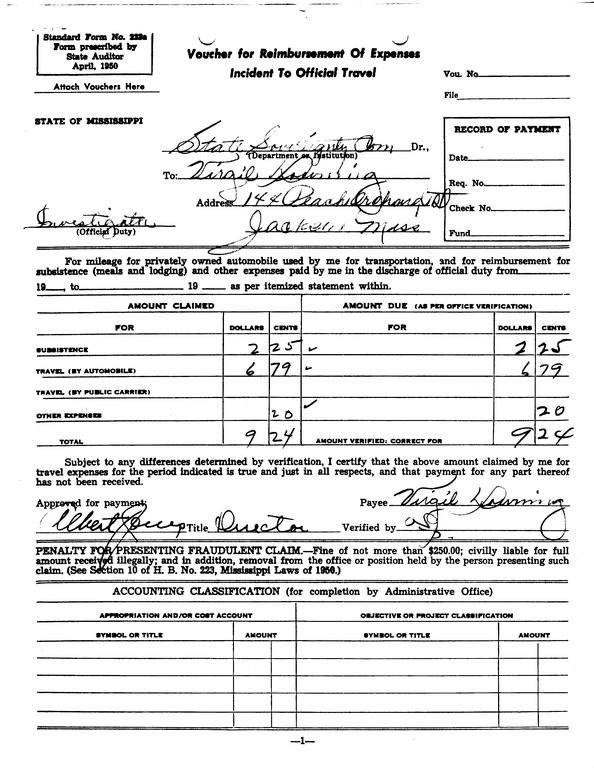 Standard Form No. 223a
Form prescribed by
State Auditor
April, 1950
Attach Vouchers Here
Voucher for Reimbursement Of Expenses
Incident To Official Travel
Vou. No.
File
STATE OF MISSISSIPPI
RECORD OF PAYMENT
State Sovereignty Com Dr.,
(Department or Institution)
Date
To: Virgil Downing
Req. No.
Address 144 Peach Orchard
Check No.
Investigator
Jackson Miss
(Official Duty)
Fund
For mileage for privately owned automobile used by me for transportation, and for reimbursement for
subsistence (meals and lodging) and other expenses paid by me in the discharge of official duty from
19 , to 19 as per itemized statement within.
AMOUNT CLAIMED AMOUNT DUE (AS PER OFFICE VERIFICATION)
FOR DOLLARS CENTS FOR DOLLARS CENTS
SUBSISTENCE 2 25 ✓ 2 25
TRAVEL (BY AUTOMOBILE) 6 79 ✓ 6 79
TRAVEL (BY PUBLIC CARRIER)
OTHER EXPENSES 20 ✓ 20
TOTAL 9 24 AMOUNT VERIFIED: CORRECT FOR 9 24
Subject to any differences determined by verification, I certify that the above amount claimed by me for
travel expenses for the period indicated is true and just in all respects, and that payment for any part thereof
has not been received.
Approved for payment: Payee Virgil Downing
Albert Jones Title Director Verified by
PENALTY FOR PRESENTING FRAUDULENT CLAIM.—Fine of not more than $250.00; civilly liable for full
amount received illegally; and in addition, removal from the office or position held by the person presenting such
claim. (See Section 10 of H. B. No. 223, Mississippi Laws of 1950.)
ACCOUNTING CLASSIFICATION (for completion by Administrative Office)
APPROPRIATION AND/OR COST ACCOUNT OBJECTIVE OR PROJECT CLASSIFICATION
SYMBOL OR TITLE AMOUNT SYMBOL OR TITLE AMOUNT
—1—